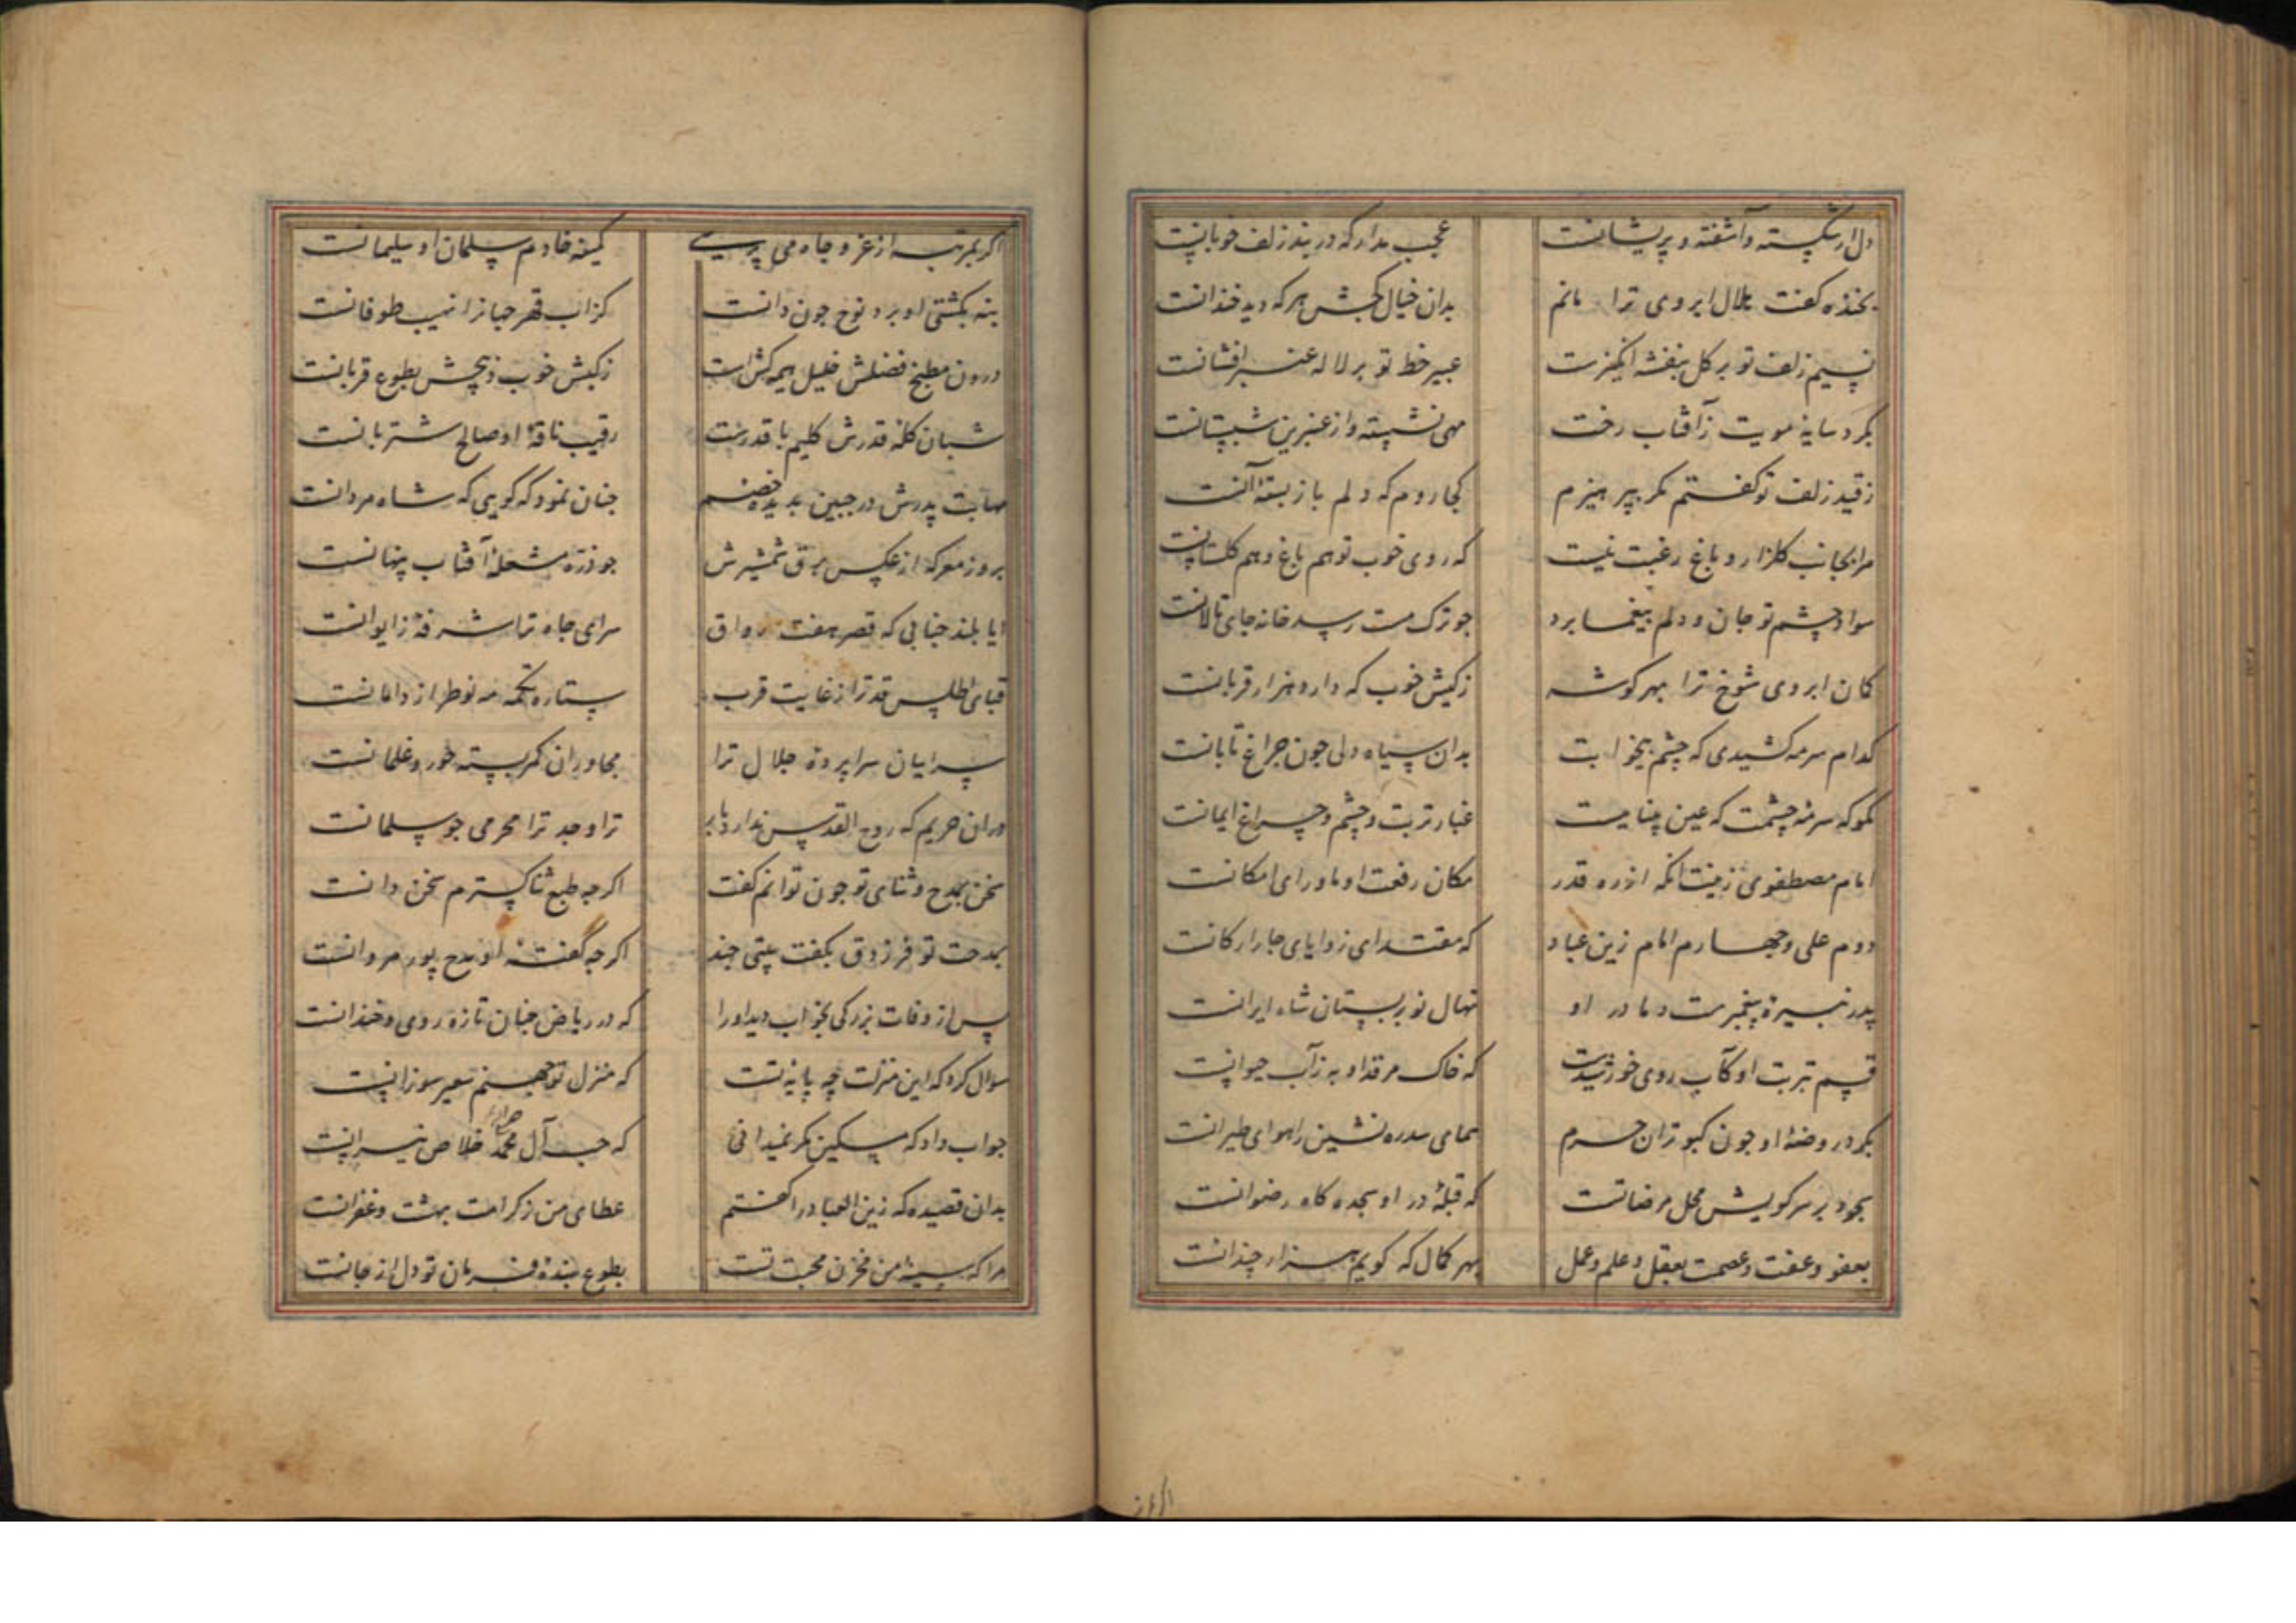 دل ار شکسته و آشفته و پریشانست عجب مدار که در بند زلف خوبانست
بخنده کفت هلال ابروی ترا مانم بدان خیال کجش هر که دید خندانست
نسیم زلف تو بر کل بنفشه انکیزست عبیر خط تو بر لاله عنبر افشانست
بکرد سایه مویت زآفتاب رخت مهی نشسته و از عنبرین شبستانست
ز قید زلف تو کفتم مکر بپرهیزم کجا روم که دلم باز بستهٔ آنست
مرا بجانب کلزار و باغ رغبت نیست که روی خوب تو هم باغ و هم کلستانست
سواد چشم تو جان و دلم بیغما برد جو ترک مست رسد خانه جای تالانست
کمان ابروی شوخ ترا بهر کوشه ز کیش خوب که دارد هزار قربانست
کدام سرمه کشیدی که چشم بیخوابت بدان سیاه دلی جون جراغ تابانست
مکو که سرمهٔ چشمت که عین بیناییست غبار تربت و چشم و چراغ ایمانست
امام مصطفوی زینت آنکه از ره قدر مکان رفعت او ماورای امکانست
دوم علی و جهارم امام زین عباد که مقتدای زوایای جار ارکانست
پدر نبیرهٔ پیغمبرست و مادر او نهال نوبر بستان شاه ایرانست
قسم بتربت او کآب روی خورشیدست که خاک مرقد او به زآب حیوانست
بکرد روضهٔ او جون کبوتران حرم همای سدره نشین را هوای طیرانست
سجود بر سر کویش محل مرضاتست که قبلهٔ در او سجده کاه رضوانست
بعفو و عفت و عصمت بعقل و علم و عمل بهر کمال که کویم هزار چندانست
اکر بمر
اکر بمرتبه از عز و جاه می پرسی کمینه خادم سلمان او سلیمانست
بنه بکشتی او برد نوح جون دانست کزاب قهر جهانرا نهیب طوفانست
درون مطبخ فضلش خلیل هیمه کش است ز کیش خوب ذبیحش بطوع قربانست
شبان کلهٔ قدرش کلیم با قدرست رقیب ناقهٔ او صالح شتربانست
مهابت پدرش در جبین بدیده خصم جنان نمود که کویی که شاه مردانست
بروز معرکه از عکس برق شمشیرش جو ذره مشعلهٔ آفتاب پنهانست
ایا بلند جنابی که قصر هفت رواق سرای جاه ترا شرفهٔ ز ایوانست
قبای اطلس قدر ترا ز غایت قرب ستاره تکمه مه نو طراز دامانست
سراییان سراپردهٔ جلال ترا مجاوران کمر بسته حور و غلمانست
دران حریم که روح القدس ندارد بار ترا و جد ترا محرمی جو سلمانست
سخن بمدح و ثنای تو جون توانم کفت اکر جه طبع ثنا کسترم سخن دانست
بمدحت تو فرزدق بکفت بیتی جند اکر جه گفتهٔ او مدح پور مروانست
پس از وفات بزرکی بخواب دید او را که در ریاض جنان تازه روی و خندانست
سوال کرد که این منزلت چه پایه تست که منزل تو جهنم سعیر سوزانست
جواب داد که مسکین مکر نمیدانی که حب آل محمد خلاص نیرانست
بدان قصیده که زین العباد را کفتم عطای من ز کرامت بهشت و غفرانست
مرا که سینهٔ من مخزن محبت تست بطوع بندهٔ فرمان تو دل از جانست